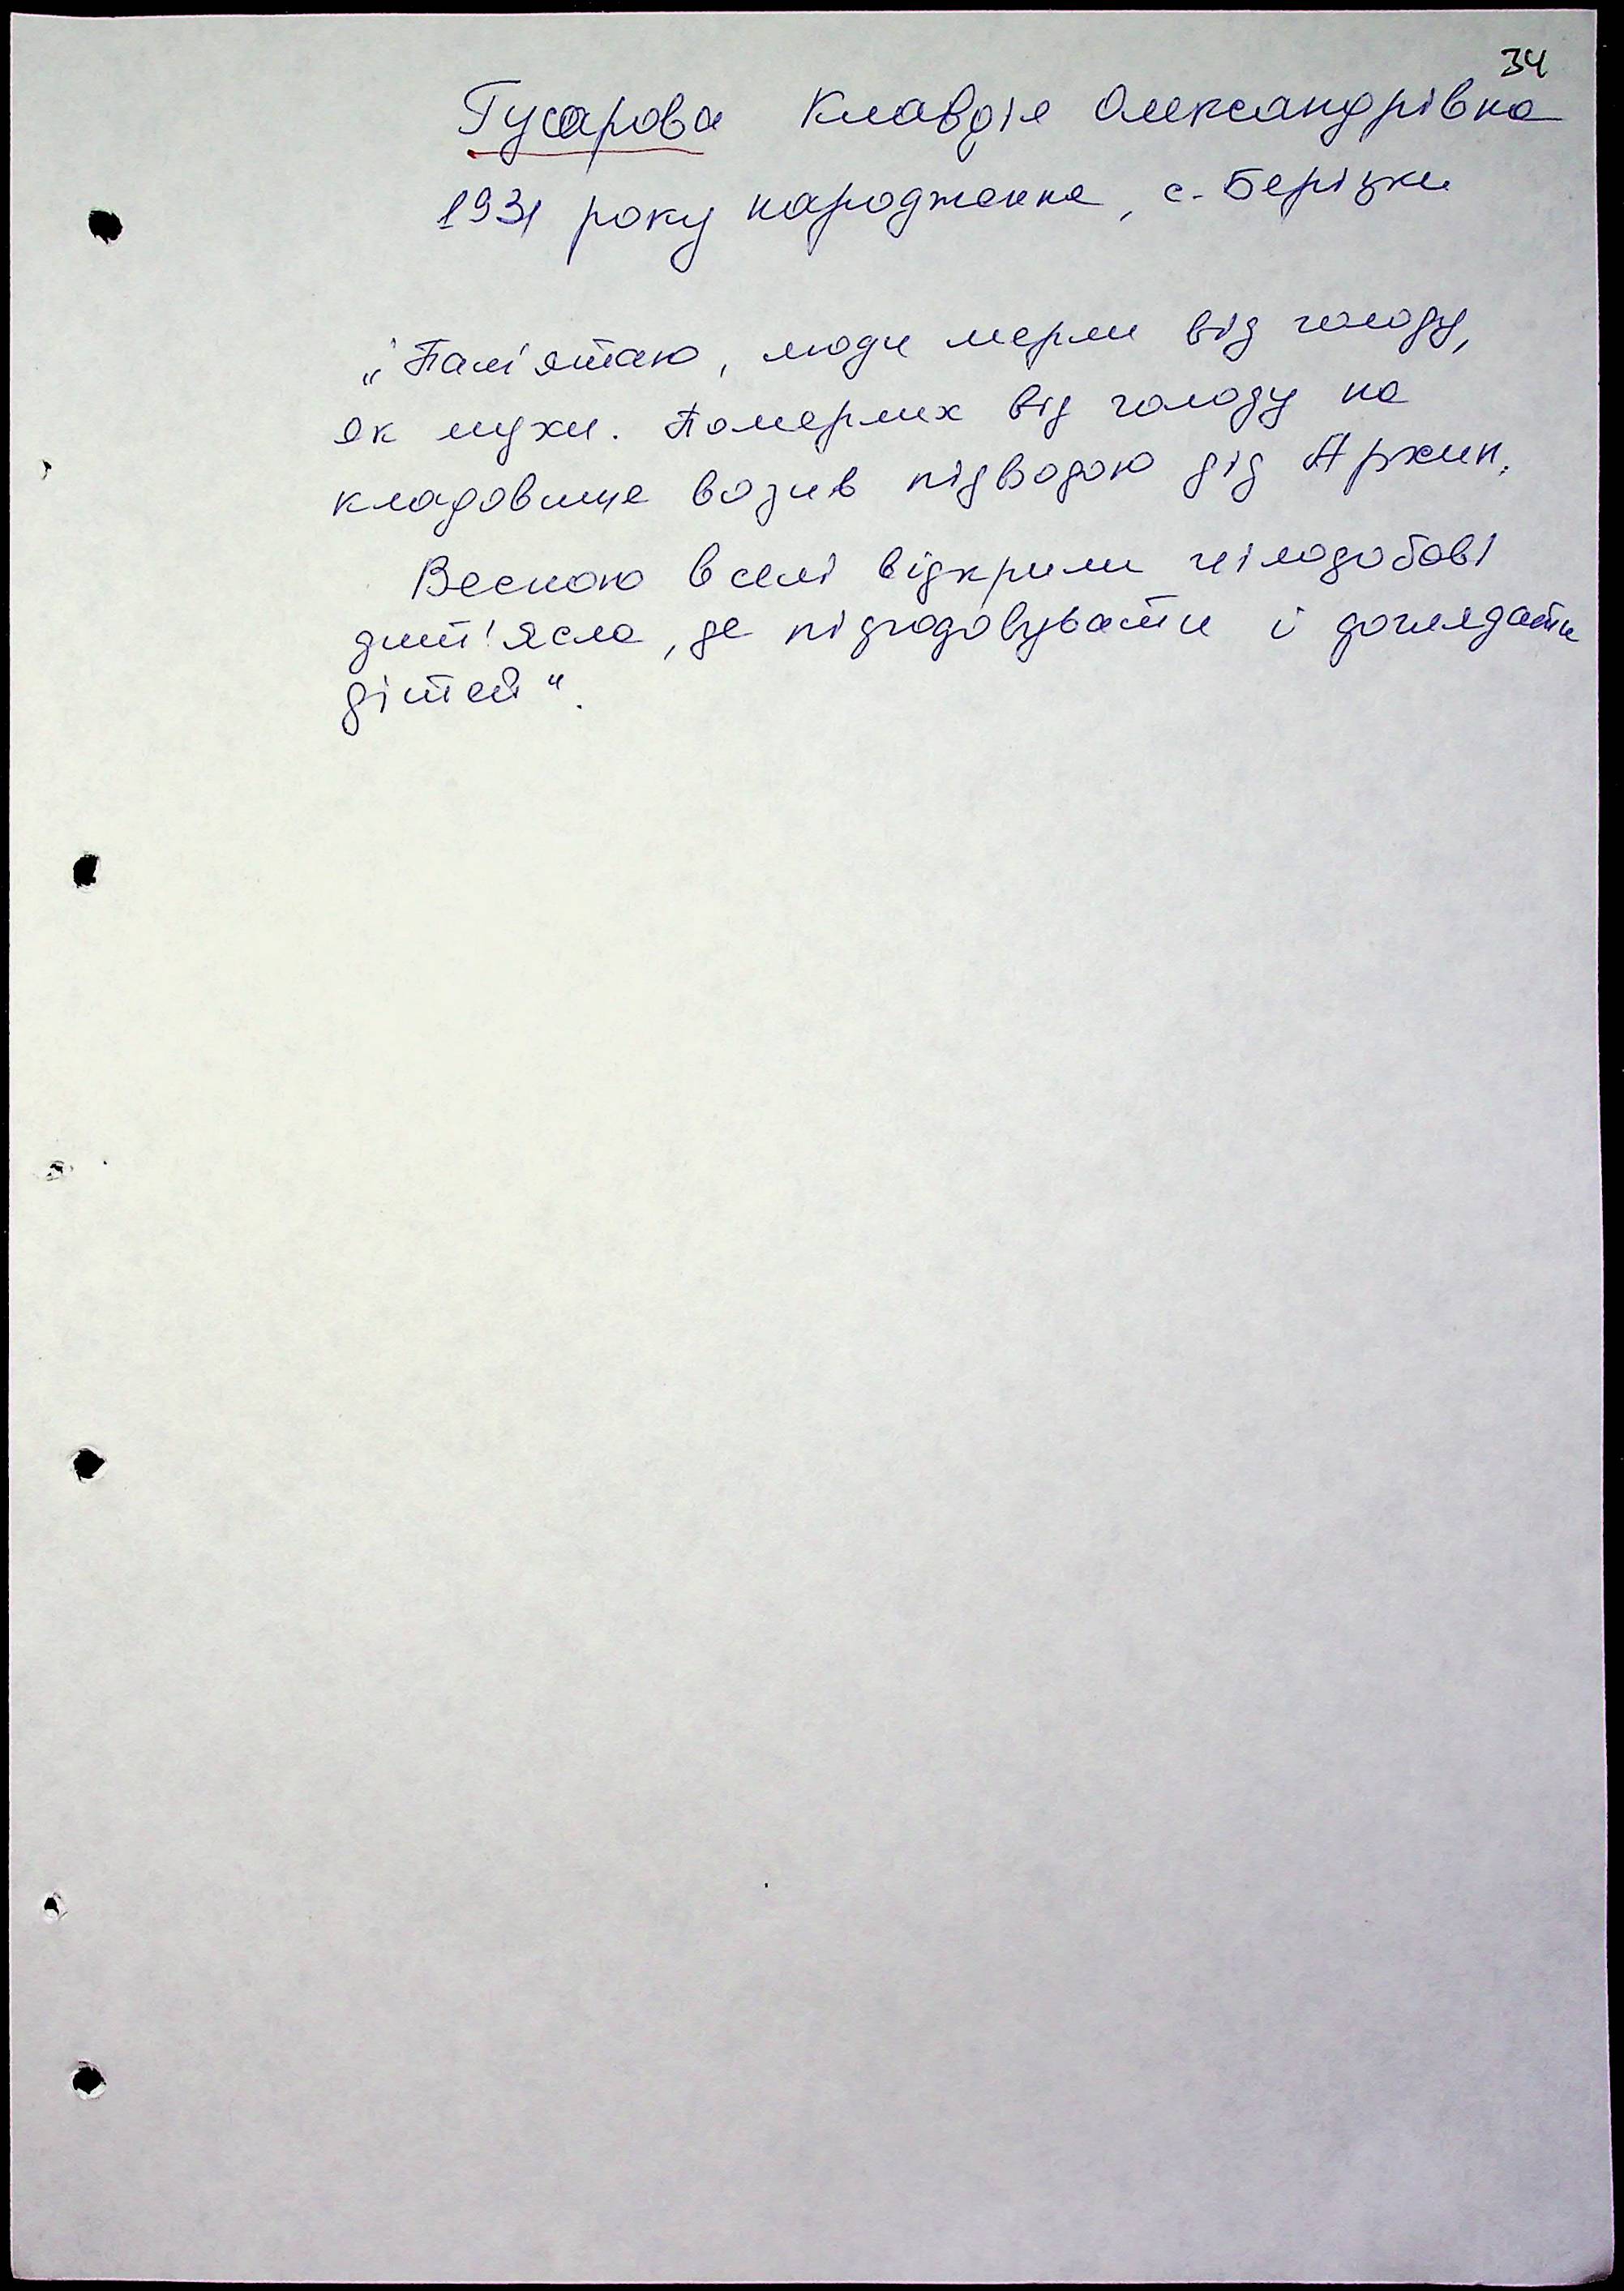 34
Гусарова Клавдія Олександрівна
1931 року народження, с. Берізки
„Пам'ятаю, люди мерли від голоду,
як мухи. Померлих від голоду на
кладовище возив підводою дід Архип.
Весною в селі відкрили цілодобові
дит'ясла, де підгодовувати і доглядати
дітей".